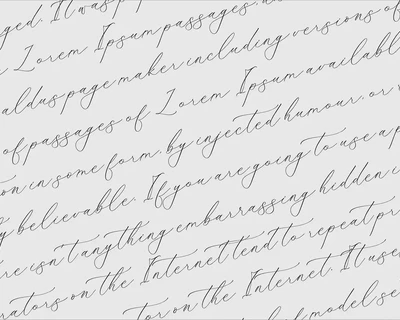 ged. It was p
Lorem Ipsum passages, a
aldus page maker including versions of
of passages of Lorem Ipsum availabl
on in some form, by injected humour, or
y believable. If you are going to use a p
re isn't anything embarrassing hidden i
rators on the Internet tend to repeat pr
tor on the Internet. It use
of model se